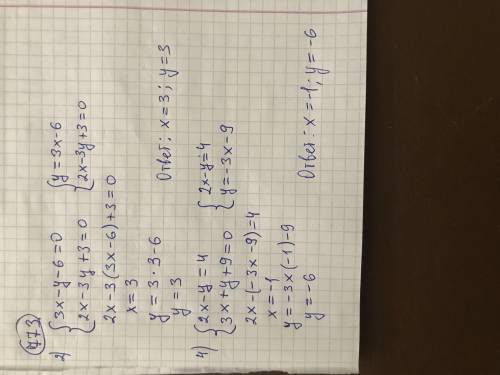 773
2) { 3x-y-6=0 { y=3x-6
{ 2x-3y+3=0 { 2x-3y+3=0
2x-3(3x-6)+3=0
x=3
y=3·3-6
y=3
Ответ: x=3; y=3
4) { 2x-y=4 { 2x-y=4
{ 3x+y+9=0 { y=-3x-9
2x-(-3x-9)=4
x=-1
y=-3x(-1)-9
y=-6
Ответ: x=-1; y=-6